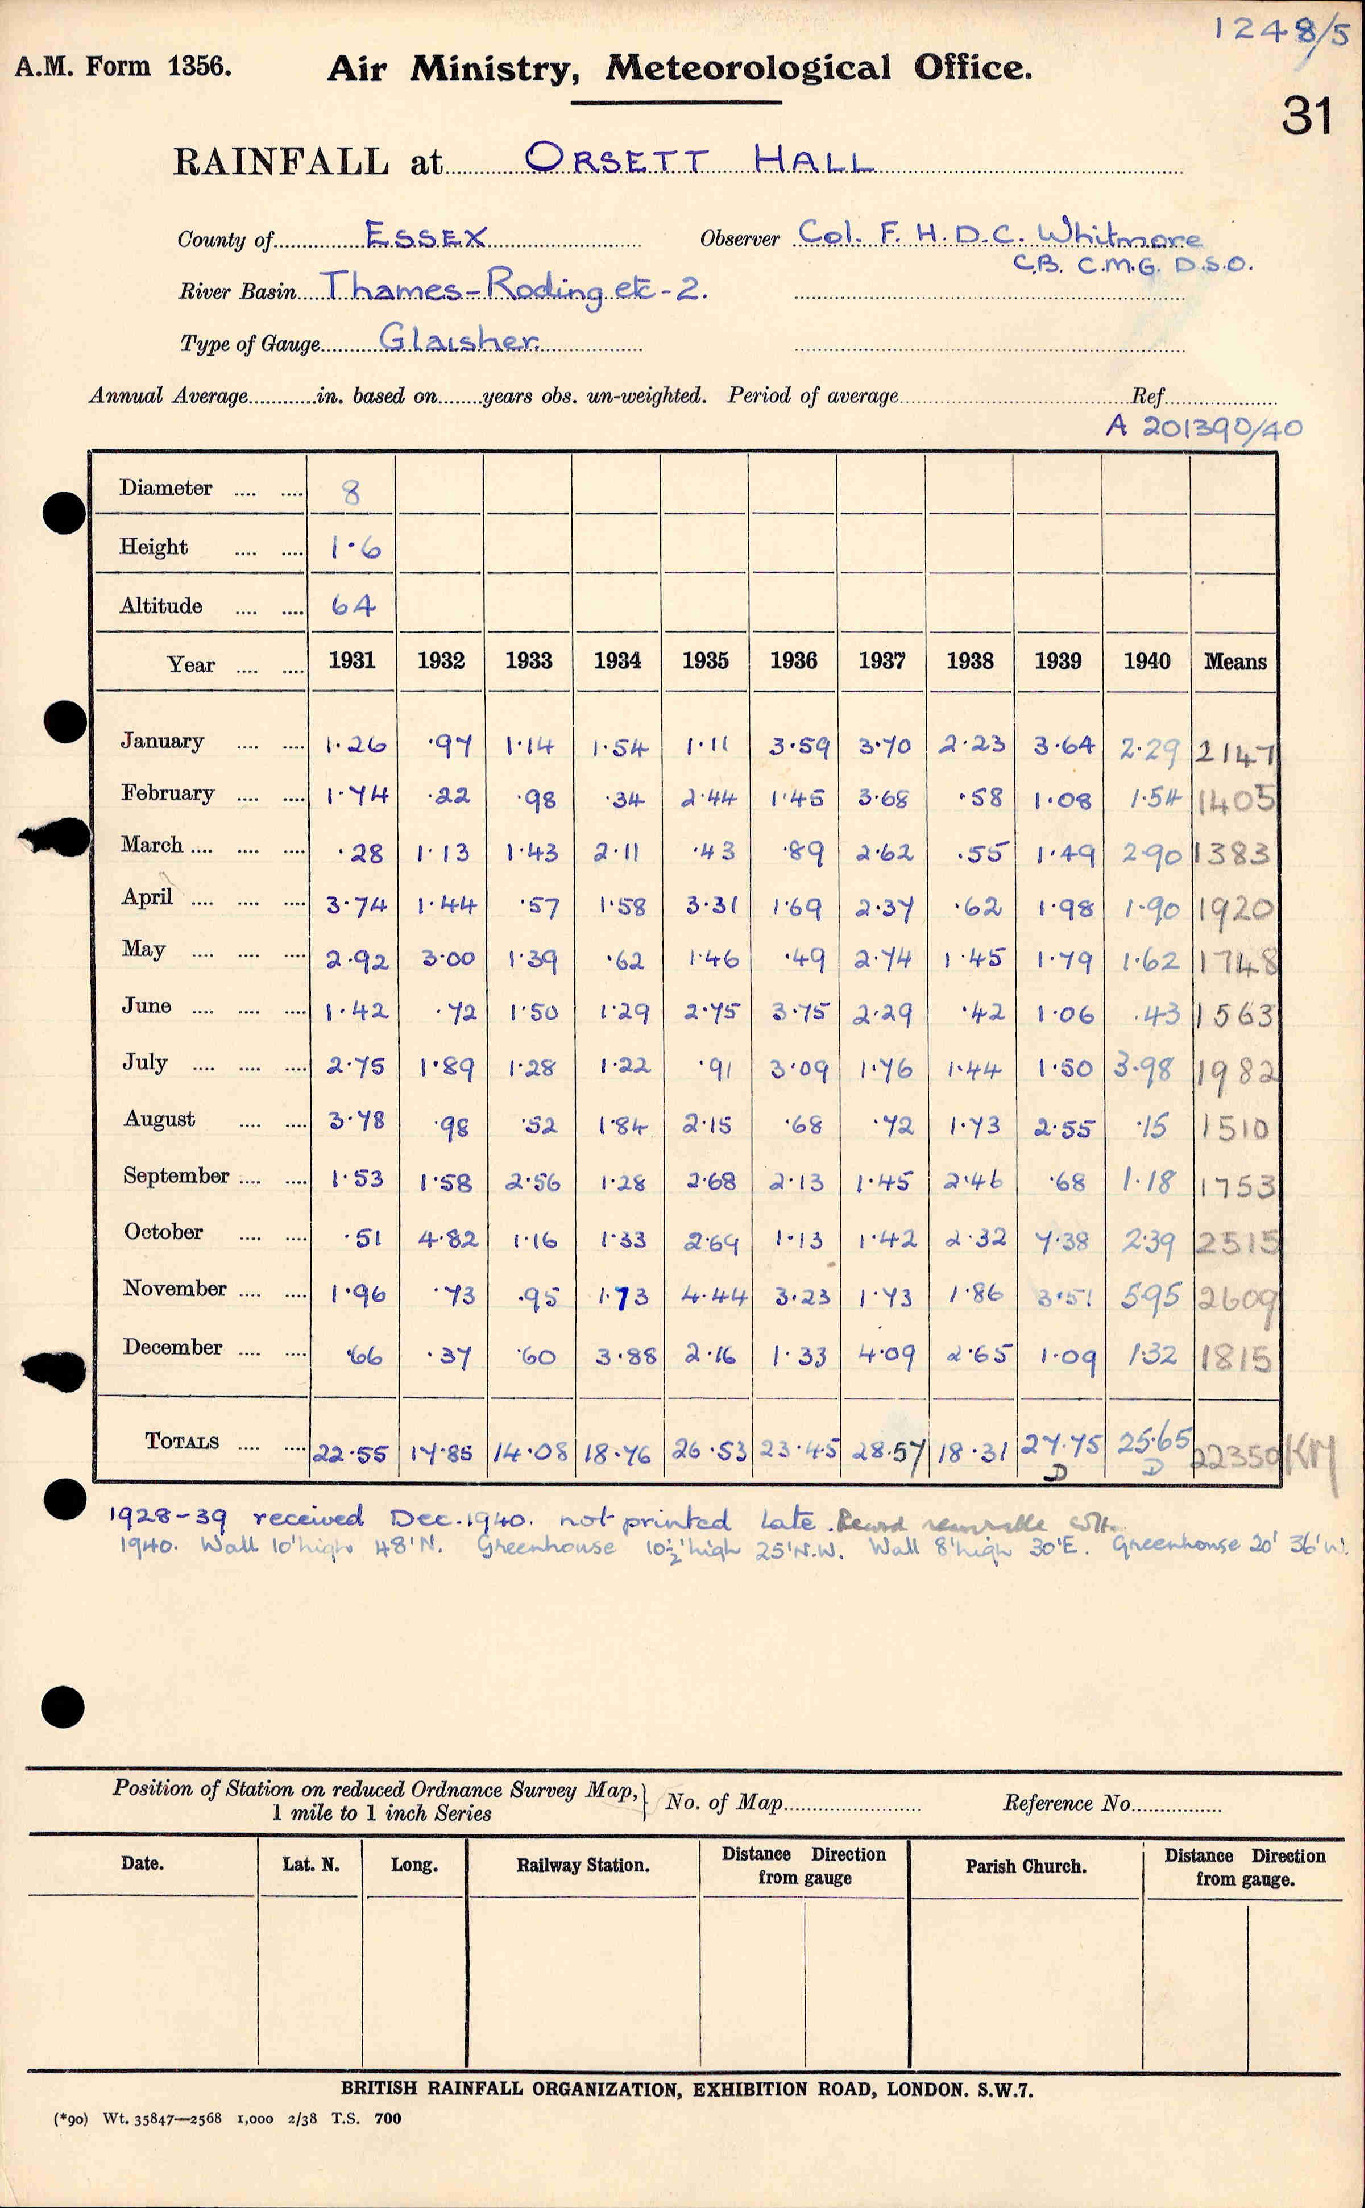 1248/5
A.M. Form 1356. Air Ministry, Meteorological Office.
31
RAINFALL at ORSETT HALL
County of ESSEX Observer Col. F. H. D. C. Whitmore
C.B. C.M.G. D.S.O.
River Basin Thames-Roding etc-2.
Type of Gauge Glaisher.
Annual Average in. based on years obs. un-weighted. Period of average Ref
A 201390/40
Diameter 8
Height 1.6
Altitude 64
Year 1931 1932 1933 1934 1935 1936 1937 1938 1939 1940 Means
January 1.26 .97 1.14 1.54 1.11 3.59 3.70 2.23 3.64 2.29 2147
February 1.74 .22 .98 .34 2.44 1.45 3.68 .58 1.08 1.54 1405
March .28 1.13 1.43 2.11 .43 .89 2.62 .55 1.49 2.90 1383
April 3.74 1.44 .57 1.58 3.31 1.69 2.37 .62 1.98 1.90 1920
May 2.92 3.00 1.39 .62 1.46 .49 2.74 1.45 1.79 1.62 1748
June 1.42 .72 1.50 1.29 2.75 3.75 2.29 .42 1.06 .43 1563
July 2.75 1.89 1.28 1.22 .91 3.09 1.76 1.44 1.50 3.98 1982
August 3.78 .98 .52 1.84 2.15 .68 .72 1.73 2.55 .15 1510
September 1.53 1.58 2.56 1.28 2.68 2.13 1.45 2.46 .68 1.18 1753
October .51 4.82 1.16 1.33 2.69 1.13 1.42 2.32 7.38 2.39 2515
November 1.96 .73 .95 1.73 4.44 3.23 1.73 1.86 3.51 5.95 2609
December .66 .37 .60 3.88 2.16 1.33 4.09 2.65 1.09 1.32 1815
TOTALS 22.55 17.85 14.08 18.76 26.53 23.45 28.57 18.31 27.75 25.65 22350 KM
D D
1928-39 received Dec. 1940. not printed late. Record
1940. Wall 10' high 48'N. Greenhouse 10½' high 25'N.W. Wall 8' high 30'E. Greenhouse 20' 36'W.
Position of Station on reduced Ordnance Survey Map, 1 mile to 1 inch Series } No. of Map Reference No.
Date. Lat. N. Long. Railway Station. Distance Direction from gauge Parish Church. Distance Direction from gauge.
BRITISH RAINFALL ORGANIZATION, EXHIBITION ROAD, LONDON. S.W.7.
(*90) Wt. 35847—2568 1,000 2/38 T.S. 700